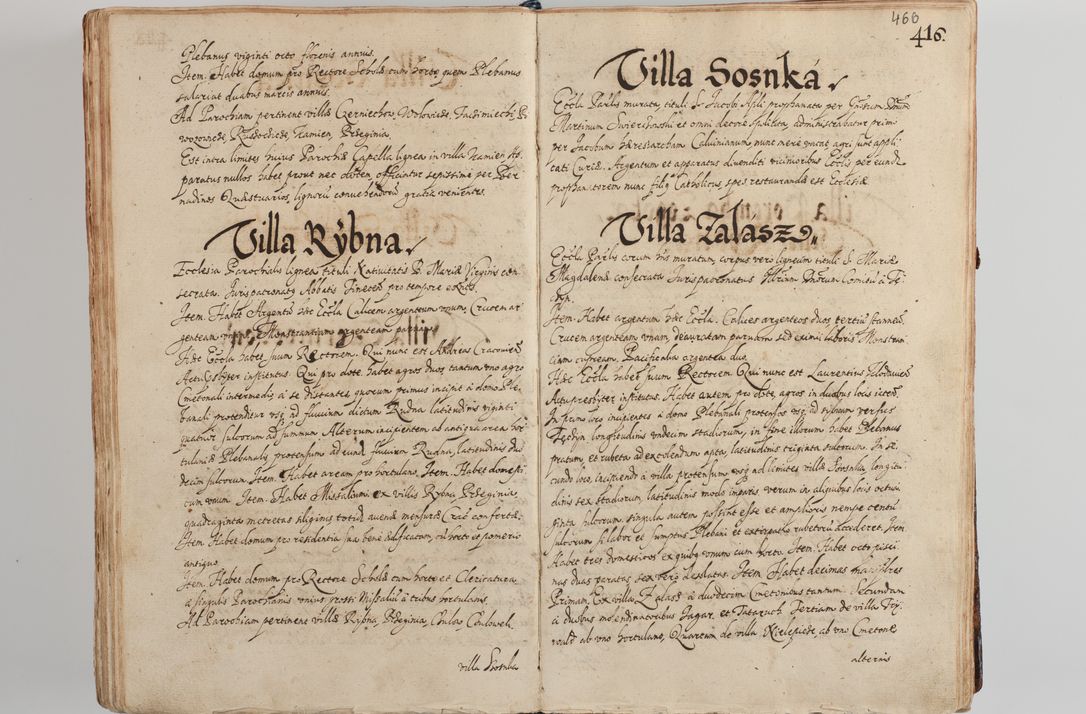 Plebanus viginti octo florenis annuis.
Item. Habet domum pro Rectore Scholæ cum horto, quem Plebanus
salariat duabus marcis annuis.
Ad Parochiam pertinent villæ Czerniechow, Wolowice,
Kamien, Przeginia,
Est intra limites huius Parochiæ Capella lignea in villa Kamien Ap-
paratus nullos habet prout nec dotem, officiatur sepissime per Ber
nadinos Quæstuarios, lignorū convehendorū gratia venientes.
Villa Rÿbna.
Ecclesia Parochialis lignea tituli Nativitatis B. Mariæ Virginis con
secrata. Jurispatronatꝰ Abbatis Tinecen̄ pro tempore exn̄tis.
Item. Habet Argentū hæc Eccl̄a Calicem argenteum unum, Crucem ar
genteam Monstrantiam argenteam parvam.
Hæc Eccl̄a habet suum Rectorem. Qui nunc est Andreas Cracovien̄
Actu Pr̄sbyter institutus. Qui pro dote habet agros duos tantum uno agro
Cmetonali intermedio, à se distantes, quorum primus incipit à domo Ple-
banali protenditur usq̄ ad fluvium dictum Rudna latitudinis viginti
quatuor sulcorum ad summum. Alterum incipientem ab antiqua area hor
tulaniæ Plebanalis protensum ad eund̄ fluvium Rudna, latitudinis duo
decim sulcorum. Item. Habet aream pro hortulano. Item. Habet domesti
cum unum. Item. Habet Missalium ex villis Rybna, Przeginia,
quadraginta metretas siliginis totid̄ avenæ mensuræ Crac̄ confertæ.
Item. Habet domum pro residentia sua bene ædificatam, cū horto et pomerio
antiquo.
Item. Habet domum pro Rectore Scholæ cum horto et Clericatura
a singulis Parochianis unius grossi Missaliū à tribus hortulanis
Ad Parochiam pertinent villæ Rybna, Przeginia,
villa Sosnka
466
416.
Villa Sosnká.
Eccl̄a Parl̄is murata, tituli S. Jacobi Apl̄i prophanata per
Martinum Swierchowski et omni decore spoliata, administrabatur primo
per Jacobum hæresiarcham Calvinianum, nunc mere vacat agri sunt appli
cati Curiæ. Argentum et apparatus divenditi vicinioribus Eccl̄is per eund̄
prophanatorem nunc filiꝰ Catholicus, spes restaurandæ est Ecclesiæ
Villa Zalász.
Eccl̄a Parl̄is corum h̄ns muratam, corpus vero ligneum tituli S. Mariæ
Magdalenæ consecrata Jurispatronatus Comitū à Tę
czyn.
Item. Habet argentum hæc Eccl̄a. Calices argenteos duos tertiū stanneū.
Crucem argenteam, unam, deauratam parvam sed eximii laboris Monstran
tiam cupream, Pacificalia argentea duo.
Hæc Eccl̄a habet suum Rectorem Qui nunc est Laurentius
Actu presbyter institutus. Habet autem pro dote, agros in duobus locis
In primo loco incipientes a domo Plebanali protensos usq̄ ad sylvam versus
Tęczyn longitudinis undecim stadiorum, in fine illorum habet Plebanus
pratum, et rubeta ad excolendum apta, latitudinis triginta sulcorum. In se
cundo loco, incipiendo à villa protensum usq̄ ad limites villæ Sosnka, longitu
dinis sex stadiorum, latitudinis modo imparis verum in aliquibus locis octua
ginta sulcorum, singula autem possent esse et amplioris nempe centū
sulcorum si labor et sumptus Plebani et extirpatio rubetorū accederet. Item.
Habet tres domesticos ex quibꝰ unum cum horto. Item. Habet octo pisci
nas duas paratas sex verò desolatas. Item. Habet decimas
Primam, Ex villa Zalasz à duodecim Cmetonibus tantum. Secundam
à duobus molendinatoribus Jagar, et Tataruch Tertiam de villa Fry
vald ab uno hortulano, Quartam de villa Nielepice, ab uno Cmetone
alternis